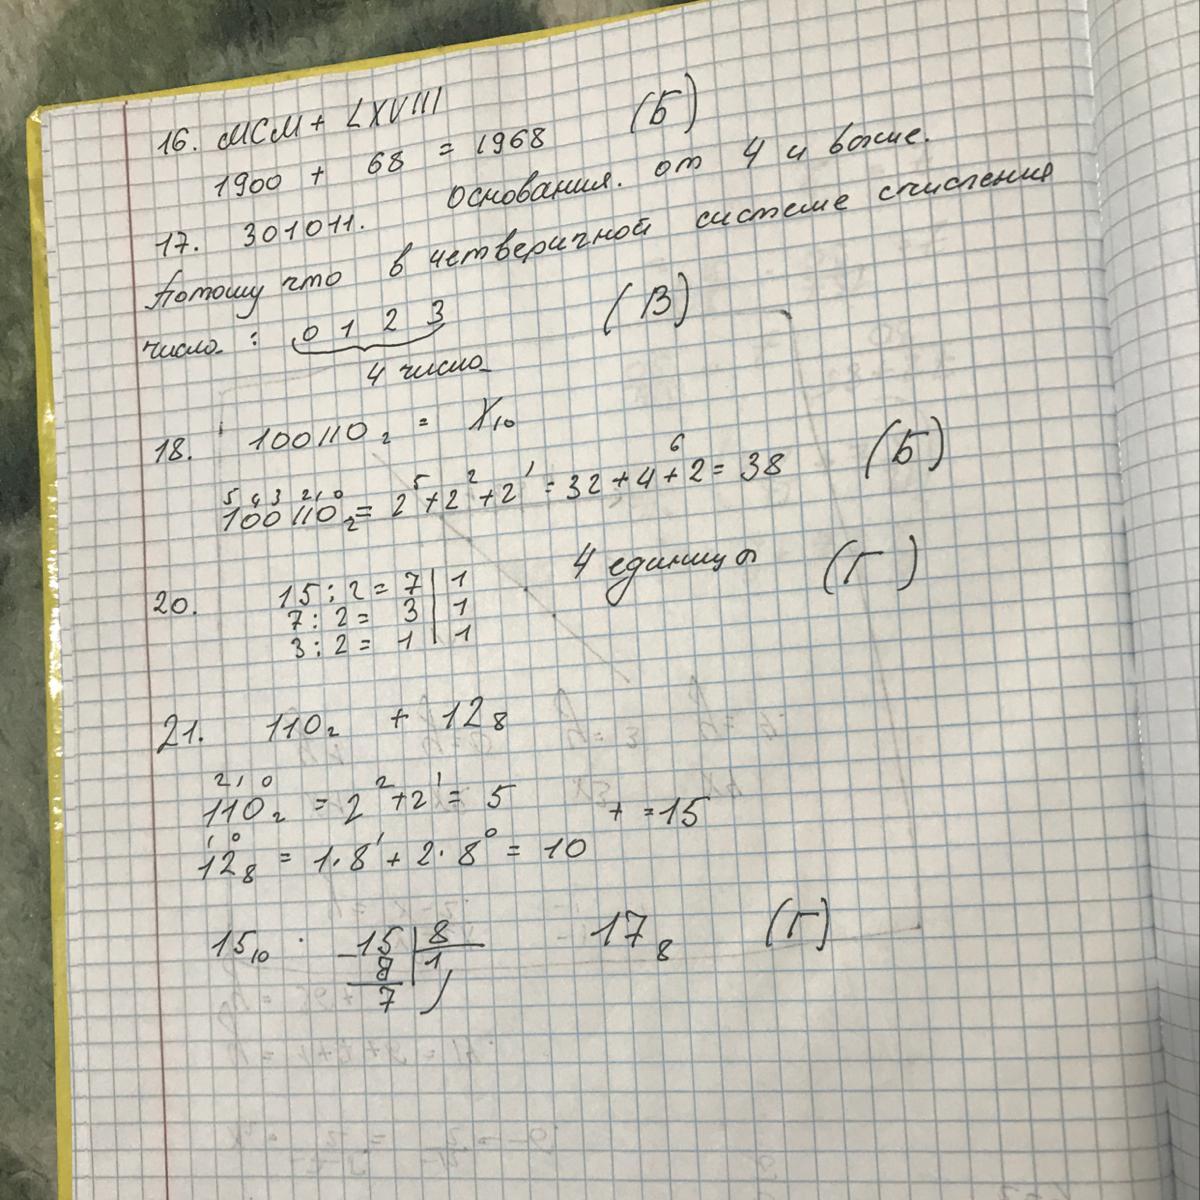 16. МСМ + LXVIII
1900 + 68 = 1968 (Б)
17. 301011. Основания. от 4 и выше.
Потому что в четверичной системе счисления
число : 0 1 2 3 (В)
4 число
18. 100110₂ = X₁₀
5 4 3 2 1 0
100110₂ = 2⁵ + 2² + 2¹ = 32 + 4 + 2 = 38 (Б)
6
20. 15 : 2 = 7 | 1 4 единицы (Г)
7 : 2 = 3 | 1
3 : 2 = 1 | 1
21. 110₂ + 12₈
2 1 0
110₂ = 2² + 2¹ = 5 + = 15
1 0
12₈ = 1 · 8¹ + 2 · 8⁰ = 10
15₁₀ . − 15 | 8 17₈ (Г)
8 | 1
7